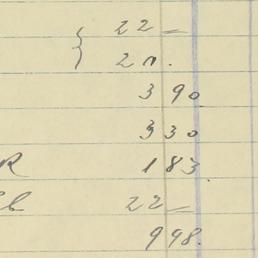 { 22 —
20.
390
330
R 183
22 —
998.